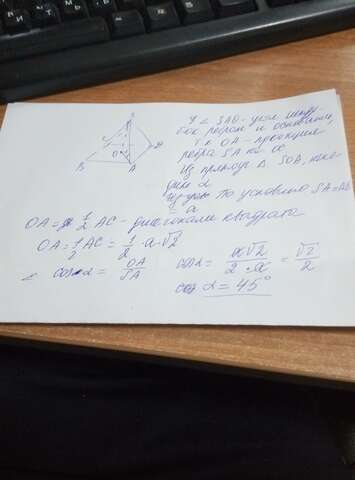 S
C
D
O
B
A
∠ SAO - угол между
бок ребром и основанием,
т к OA - проекция
ребра SA на
Из прямоуг Δ SOA, найдем
α
по условию SA=AB
= a
OA = 1/2 AC - диагонали квадрата
OA = 1/2 AC = 1/2 · a √2
cos α = OA/SA
cos α = a√2 / 2·a = √2/2
α = 45°